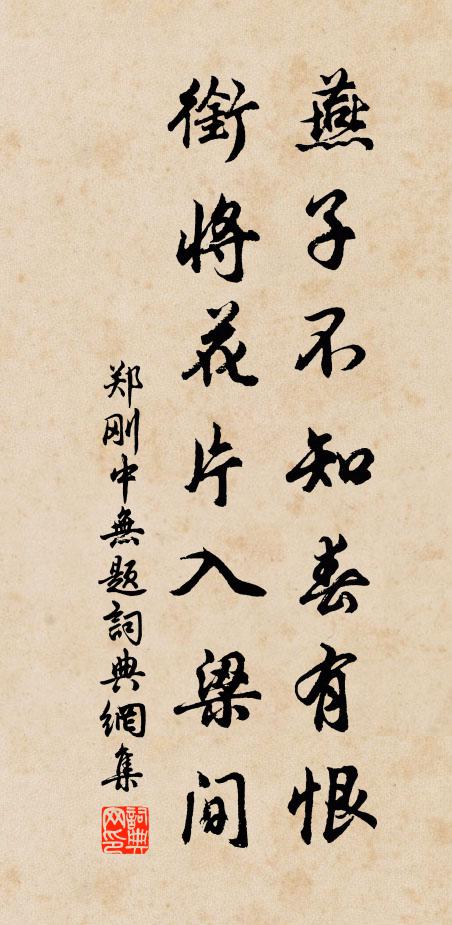 燕子不知春有恨
銜将花片入梁间
郑刚中無题詞典網集
詞典网印